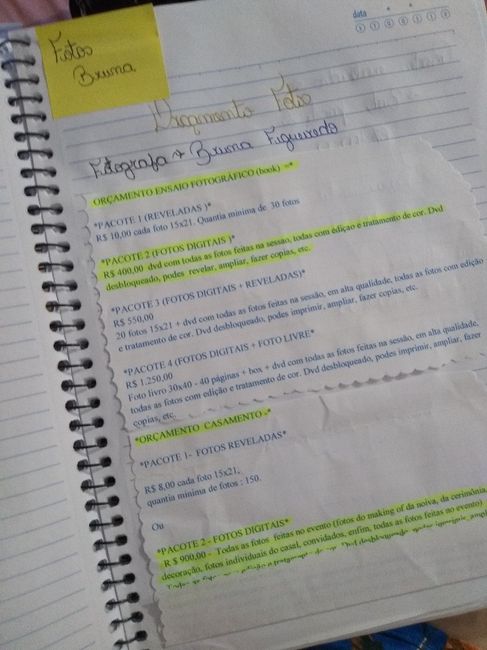 Fotos
Bruna
data
Orçamento Foto
Fotografa → Bruna Figueiredo
ORÇAMENTO ENSAIO FOTOGRÁFICO (book) =*
*PACOTE 1 (REVELADAS )*
R$ 10,00 cada foto 15x21. Quantia minima de 30 fotos
*PACOTE 2 (FOTOS DIGITAIS )*
R$ 400,00 dvd com todas as fotos feitas na sessão, todas com edição e tratamento de cor. Dvd
desbloqueado, podes revelar, ampliar, fazer copias, etc.
*PACOTE 3 (FOTOS DIGITAIS + REVELADAS)*
R$ 550,00
20 fotos 15x21 + dvd com todas as fotos feitas na sessão, em alta qualidade, todas as fotos com edição
e tratamento de cor. Dvd desbloqueado, podes imprimir, ampliar, fazer copias, etc.
*PACOTE 4 (FOTOS DIGITAIS + FOTO LIVRE*
R$ 1.250,00
Foto livro 30x40 - 40 páginas + box + dvd com todas as fotos feitas na sessão, em alta qualidade,
todas as fotos com edição e tratamento de cor. Dvd desbloqueado, podes imprimir, ampliar, fazer
copias, etc.
*ORÇAMENTO CASAMENTO -*
*PACOTE 1- FOTOS REVELADAS*
R$ 8,00 cada foto 15x21,
quantia minima de fotos : 150.
Ou
*PACOTE 2 - FOTOS DIGITAIS*
R $ 900,00 - Todas as fotos feitas no evento (fotos do making of da noiva, da cerimônia,
decoração, fotos individuais do casal, convidados, enfim, todas as fotos feitas no evento)